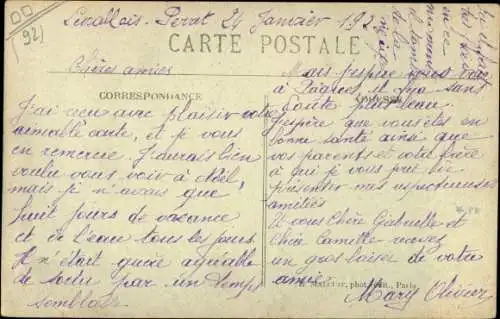 (92)
Levallois-Perret 24 Janvier 192
CARTE POSTALE
Chères amies
CORRESPONDANCE
J'ai reçu avec plaisir votre
aimable carte, et je vous
en remercie. J'aurais bien
voulu vous voir à Noël,
mais je n'avais que
huit jours de vacance
et de l'eau tous les jours.
Il n'était guère agréable
de sortir par un temps
semblable
Mais j'espère vous voir
à Pâques et
sans
toute
J'espère que vous êtes en
bonne santé ainsi que
vos parents et votre frère
à qui je vous prie de
présenter mes respectueuses
amitiés
Et vous Chère Gabrielle et
Chère Camille recevez
un gros baiser de votre
amie
phot. édit., Paris
Mary Olivier